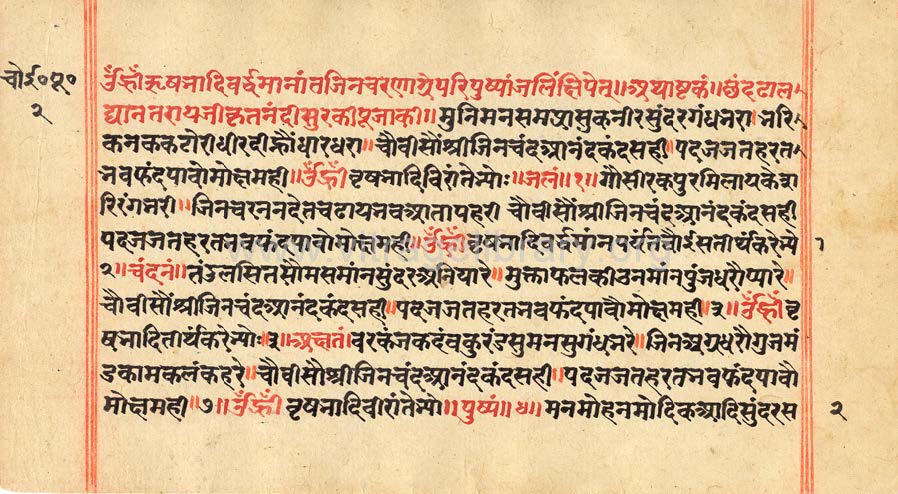 चोई॰पू॰
२
ॐह्रीं ऋषभादिवर्द्धमानांतजिनचरणाग्रेपरिपुष्पांजलिंक्षिपेत्॥अथाष्टकं॥छंदढाल
द्यानतरायजीकृतनंदीसुरकीपूजाकी॥मुनिमनसमप्रासुकनीरसुंदरगंधभरा।भरि
कनककटोरीधीरदीह्नौंधारधरा॥चौवीसौंश्रीजिनचंदआनंदकंदसही॥पदजजतहरत
भवफंदपावोमोक्षमही॥ॐह्रीं वृषभादिवीरांतेभ्योः॥जलं॥१॥गौसीरकपुरमिलायकेश
रिरंगभरी॥जिनचरननदेतचढायभवआतापहरी चौवीसौंश्रीजिनचंदआनंदकंदसही
पदजजतहरतभवफंदपावोमोक्षमही॥ॐह्रीं वृषभादिवर्द्धमानपर्यंतचौईसतीर्थंकरेभ्यो
२॥चंदनं॥तंडुलसितसोमसमानसुंदरअनियारे॥मुक्ताफलकीउनमानपुंजधरौंप्यारे॥
चौवीसौंश्रीजिनचंदआनंदकंदसही॥पदजजतहरतभवफंदपावौमोक्षमही॥३॥ॐह्रीं वृ
षभादितीर्थंकरेभ्योः३॥अक्षतं॥वरकंजकदंबकुरंडसुमनसुगंधभरे॥जिनअग्रधरौंगुनमं
डकामकलंकहरे॥चौवीसौंश्रीजिनचंदआनंदकंदसही॥पदजजतहरतभवफंदपावौ
मोक्षमही॥७॥ॐह्रीं वृषभादिवीरांतेभ्यो॥पुष्पं॥४॥मनमोहनमोदिकआदिसुंदरस
१
२
www.vitragelibrary.org